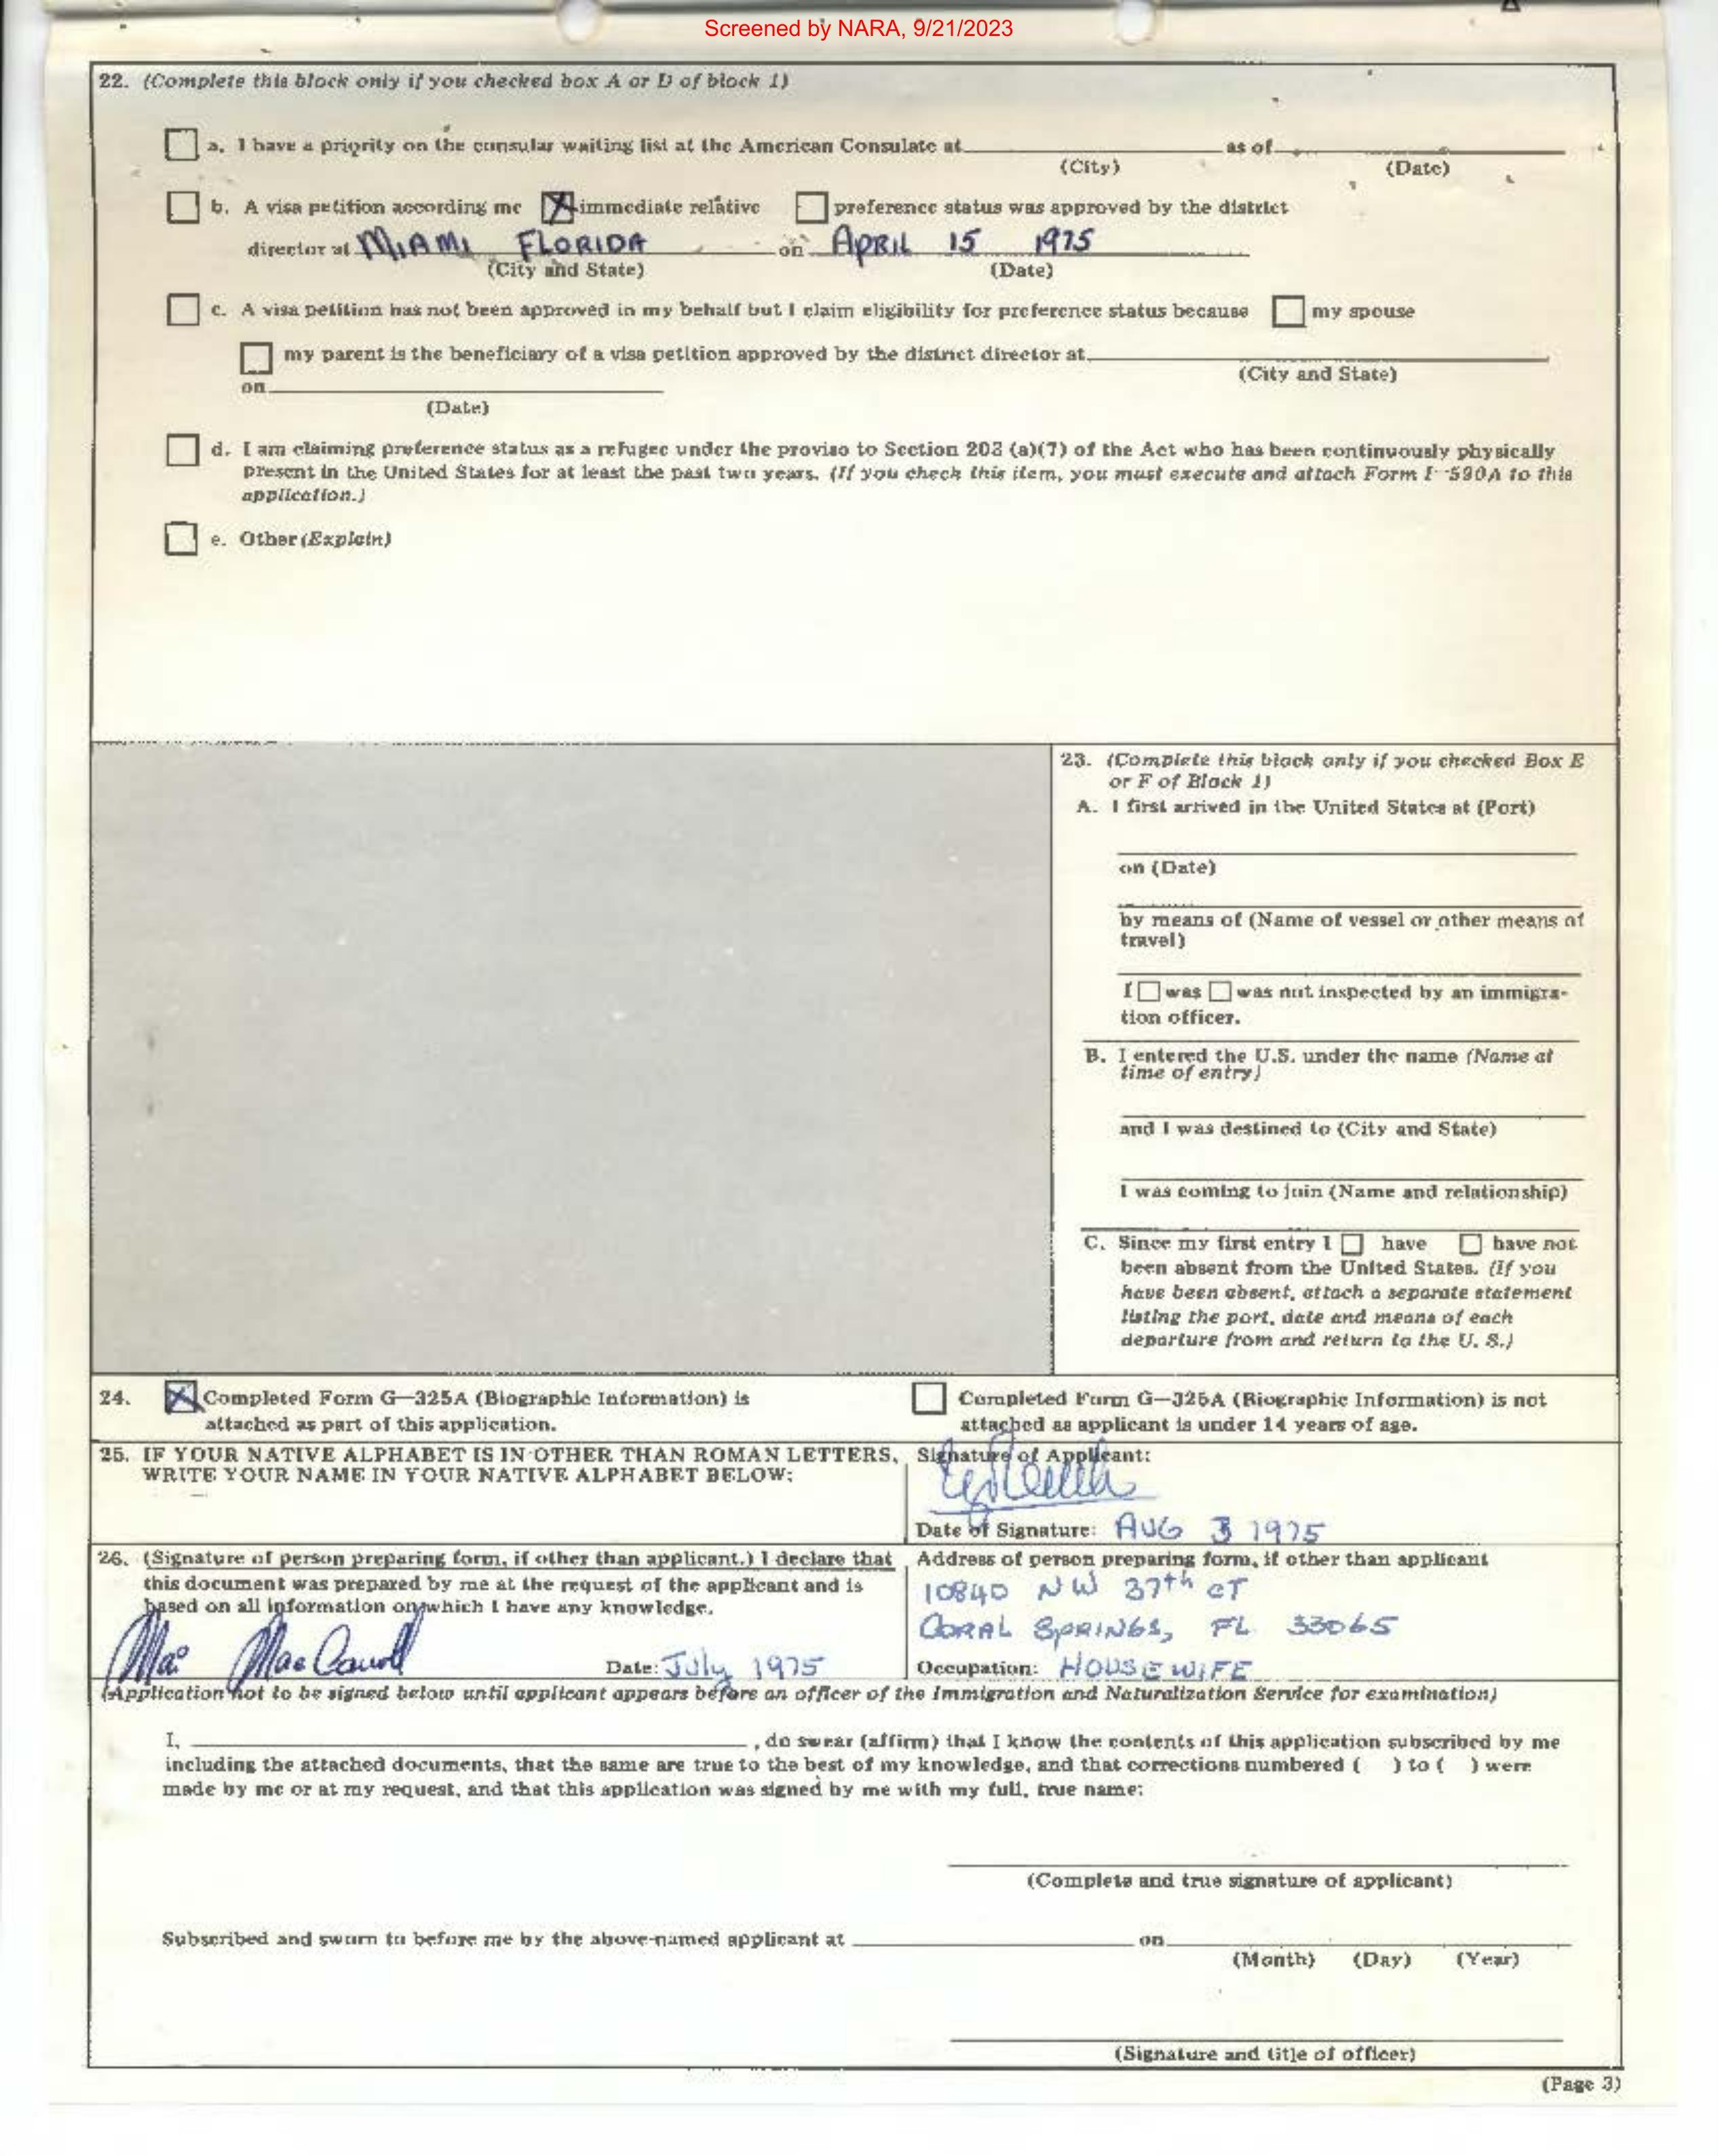 Screened by NARA, 9/21/2023
22. (Complete this block only if you checked box A or D of block 1)
a. I have a priority on the consular waiting list at the American Consulate at as of
(City) (Date)
b. A visa petition according me immediate relative preference status was approved by the district
director at MIAMI FLORIDA on APRIL 15 1975
(City and State) (Date)
c. A visa petition has not been approved in my behalf but I claim eligibility for preference status because my spouse
my parent is the beneficiary of a visa petition approved by the district director at
(City and State)
on
(Date)
d. I am claiming preference status as a refugee under the proviso to Section 203 (a)(7) of the Act who has been continuously physically
present in the United States for at least the past two years. (If you check this item, you must execute and attach Form I-590A to this
application.)
e. Other (Explain)
23. (Complete this block only if you checked Box E
or F of Block 1)
A. I first arrived in the United States at (Port)
on (Date)
by means of (Name of vessel or other means of
travel)
I was was not inspected by an immigra-
tion officer.
B. I entered the U.S. under the name (Name at
time of entry)
and I was destined to (City and State)
I was coming to join (Name and relationship)
C. Since my first entry I have have not
been absent from the United States. (If you
have been absent, attach a separate statement
listing the port, date and means of each
departure from and return to the U. S.)
24. Completed Form G-325A (Biographic Information) is
attached as part of this application.
Completed Form G-325A (Biographic Information) is not
attached as applicant is under 14 years of age.
25. IF YOUR NATIVE ALPHABET IS IN OTHER THAN ROMAN LETTERS,
WRITE YOUR NAME IN YOUR NATIVE ALPHABET BELOW:
Signature of Applicant:
Date of Signature: AUG 3 1975
26. (Signature of person preparing form, if other than applicant.) I declare that
this document was prepared by me at the request of the applicant and is
based on all information on which I have any knowledge.
Date: July 1975
Address of person preparing form, if other than applicant
10840 NW 37th CT
CORAL SPRINGS, FL 33065
Occupation: HOUSEWIFE
(Application not to be signed below until applicant appears before an officer of the Immigration and Naturalization Service for examination)
I, , do swear (affirm) that I know the contents of this application subscribed by me
including the attached documents, that the same are true to the best of my knowledge, and that corrections numbered ( ) to ( ) were
made by me or at my request, and that this application was signed by me with my full, true name:
(Complete and true signature of applicant)
Subscribed and sworn to before me by the above-named applicant at on
(Month) (Day) (Year)
(Signature and title of officer)
(Page 3)